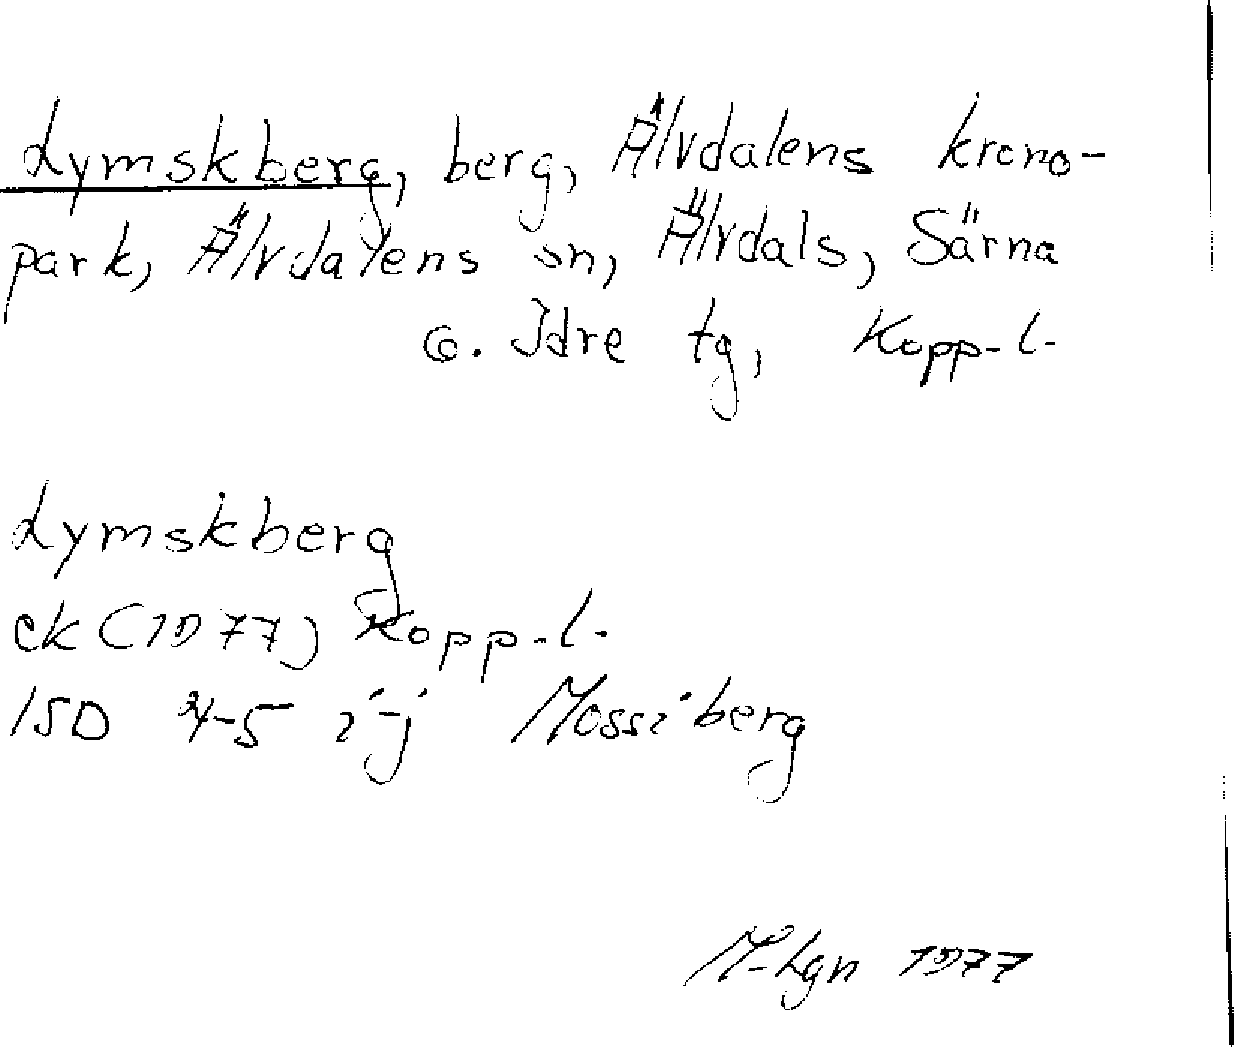 Lymskberg, berg, Älvdalens krono-
park, Älvdalens sn, Älvdals, Särna
o. Idre tg, Kopp-l-
Lymskberg
ek (1977) Kopp-l-
15D 4-5 i-j Mossiberg
M-Lgn 1977